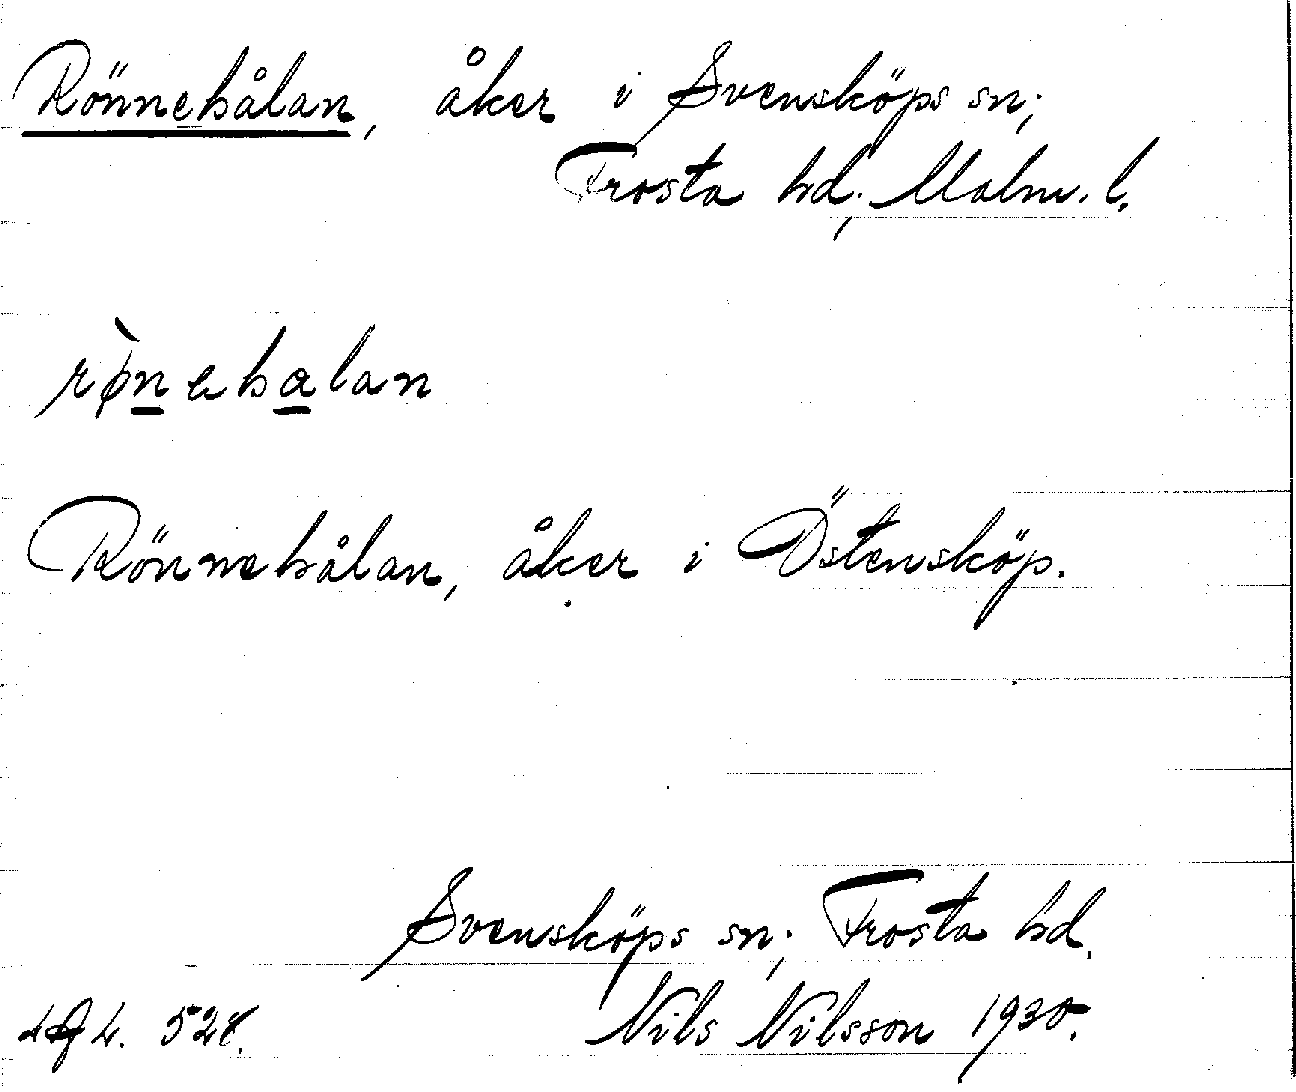 Rönnehålan, åker i Svensköps sn;
Frosta hd; Malm. l.
rø̀nehalan
Rönnehålan, åker i Östensköp.
Svensköps sn; Frosta hd.
528. Nils Nilsson 1930.